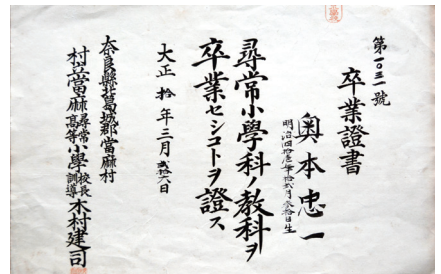 第一〇三一號
卒業證書
奥本忠一
明治四拾壹年拾貳月參拾日生
尋常小學科ノ教科ヲ
卒業セシコトヲ證ス
大正拾年三月貳拾六日
奈良縣北葛城郡當麻村
村立當麻尋常高等小學校長訓導木村建司